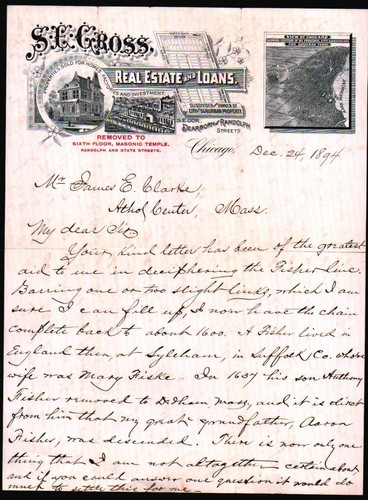 S. E. GROSS.
REAL ESTATE AND LOANS.
SUBDIVIDER AND OWNER OF
CITY AND SUBURBAN PROPERTY
S.E. COR.
DEARBORN AND RANDOLPH
STREETS
REMOVED TO
SIXTH FLOOR, MASONIC TEMPLE,
RANDOLPH AND STATE STREETS.
Chicago, Dec. 24, 1894
Mr James E. Clarke,
Athol Center, Mass.
My dear Sir
Your kind letter has been of the greatest
aid to me in deciphering the Fisher line.
Barring one or two slight links, which I am
sure I can fill up, I now have the chain
complete back to about 1600. A Fisher lived in
England then, at Syleham, in Suffolk Co. whose
wife was Mary Fiske. In 1637 his son Anthony
Fisher removed to Dedham Mass, and it is direct
from him that my great grandfather, Aaron
Fisher, was descended. There is now only one
thing that I am not altogether certain about
and if you could answer one question it would do
much to settle this for me.